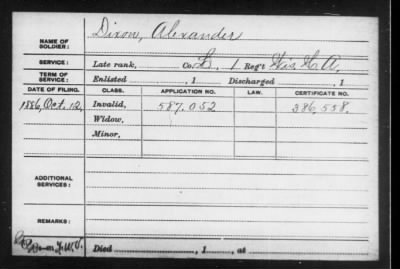 NAME OF SOLDIER: Dixon, Alexander
SERVICE: Late rank, Co. L. 1 Reg't Wis. H.A.
TERM OF SERVICE: Enlisted , 1 Discharged , 1
DATE OF FILING. CLASS. APPLICATION NO. LAW. CERTIFICATE NO.
1886, Oct. 12, Invalid, 587.052 386.558.
Widow,
Minor,
ADDITIONAL SERVICES:
REMARKS:
Died , 1 , at